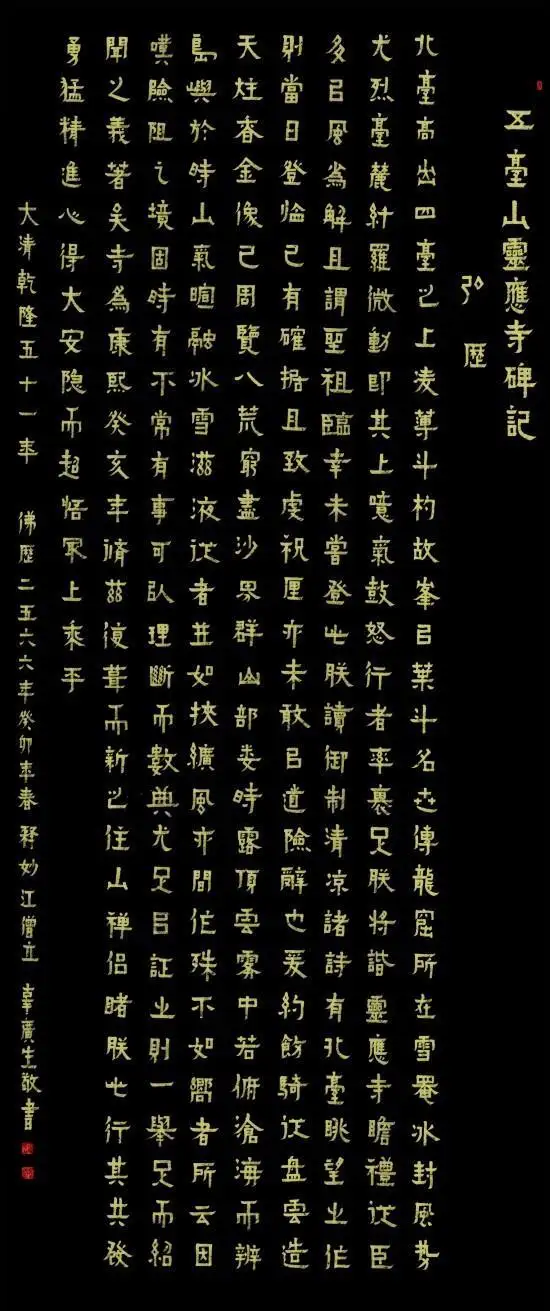 五臺山靈應寺碑記
弘歷
北臺高出四臺之上凌薄斗杓故峯㠯葉斗名世傳龍窟所在雪罨冰封風勢
尤烈臺麓紆羅微動即其上噫氣鼓怒行者率裹足朕將詣靈應寺瞻禮從臣
多㠯風為解且謂聖祖臨幸未嘗登此朕讀御制清凉諸詩有北臺眺望之作
則當日登臨已有確据且致虔祝厘亦未敢㠯道險辭也爰約飭騎從盤雲造
天炷香金像已周覽八荒窮盡沙界群山部婁時露頂雲霧中若俯滄海而辨
島嶼於時山氣暄融冰雪滋液從者並如挾纊風亦間作殊不如嚮者所云因
嘆險阻之境固時有不常有事可㠯理斷而數典尤足㠯証之則一舉足而紹
聞之義著矣寺為康熙癸亥年脩茲復葺而新之住山禅侶睹朕此行其共發
勇猛精進心得大安隐而超悟冣上乘乎
大清乾隆五十一年 佛歷二五六六年癸卯年春 釋妙江僧立 辜廣生敬書